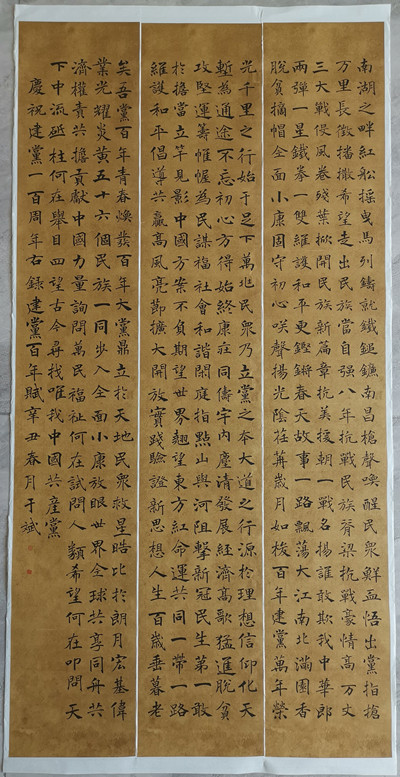 南湖之畔紅船摇曳馬列鑄就鐵鎚鐮南昌槍聲喚醒民衆鮮血悟出黨指槍
万里長徵播撒希望走出民族當自强八年抗戰民族脊梁抗戰豪情高万丈
三大戰役風卷殘葉掀開民族新篇章抗美援朝一戰名揚誰敢欺我中華郎
兩弹一星鐵拳一雙維護和平更鏗鏘春天故事一路飄蕩大江南北滿園香
脱貧摘帽全面小康固守初心咲聲揚光陰荏苒歲月如梭百年建黨萬年榮
光千里之行始于足下萬兆民衆乃立黨之本大道之行源於理想信仰化天
塹為通途不忘初心方得始終康莊同儔宇内慶清發展經濟高歌猛進脱貧
攻堅運籌帷幄為民謀福社會和諧閑庭指點山與河阻擊新冠民生第一敢
於擔當立竿見影中國方案不負期望世界翹望東方紅命運共同一帶一路
維護和平倡導共贏高風亮節擴大開放實踐驗證新思想人生百歲垂暮老
矣吾黨百年青春焕發百年大黨鼎立於天地民衆救星皓比於朗月宏基偉
業光耀炎黄五十六個民族一同步入全面小康放眼世界全球共享同舟共
濟權責共擔貢獻中國力量詢問萬民福祉何在試問人類希望何在叩問天
下中流砥柱何在舉目四望古今尋找唯我中國共産黨
慶祝建黨一百周年右錄建黨百年賦辛丑春月于斌